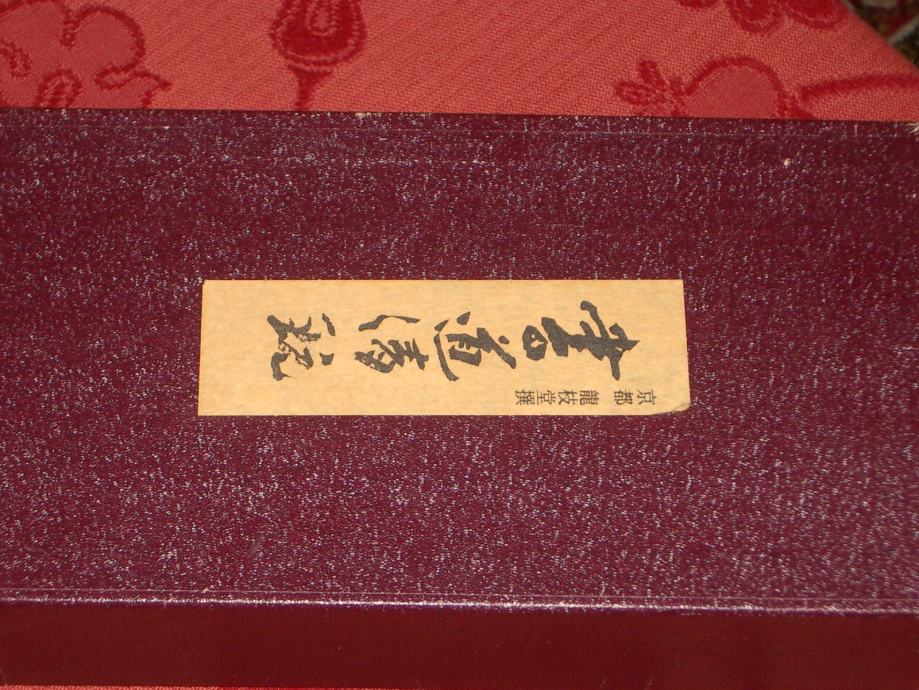 書道清
京都 龍枝堂 撰